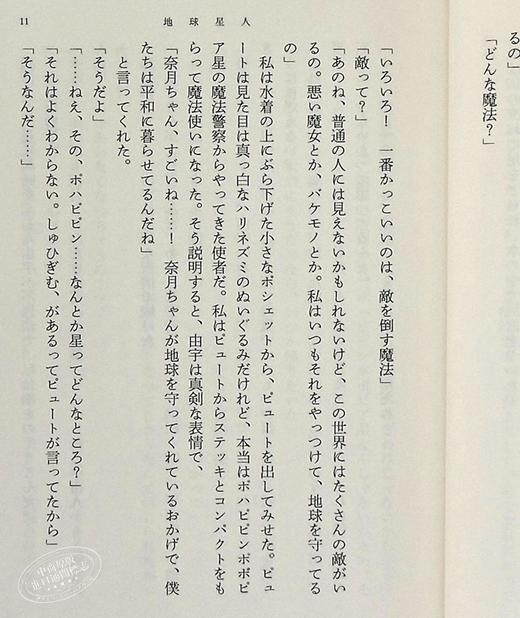 るの」
「どんな魔法？」
地球星人
11
「いろいろ！　一番かっこいいのは、敵を倒す魔法」
「敵って？」
「あのね、普通の人には見えないかもしれないけど、この世界にはたくさんの敵がい
るの。悪い魔女とか、バケモノとか。私はいつもそれをやっつけて、地球を守ってる
の」
　私は水着の上にぶら下げた小さなポシェットから、ピュートを出してみせた。ピュ
ートは見た目は真っ白なハリネズミのぬいぐるみだけれど、本当はポハピピンポボピ
ア星の魔法警察からやってきた使者だ。私はピュートからステッキとコンパクトをも
らって魔法使いになった。そう説明すると、由宇は真剣な表情で、
「奈月ちゃん、すごいね……！　奈月ちゃんが地球を守ってくれているおかげで、僕
たちは平和に暮らせてるんだね」
　と言ってくれた。
「そうだよ」
「……ねえ、その、ポハピピン……なんとか星ってどんなところ？」
「それはよくわからない。しゅひぎむ、があるってピュートが言ってたから」
「そうなんだ……」